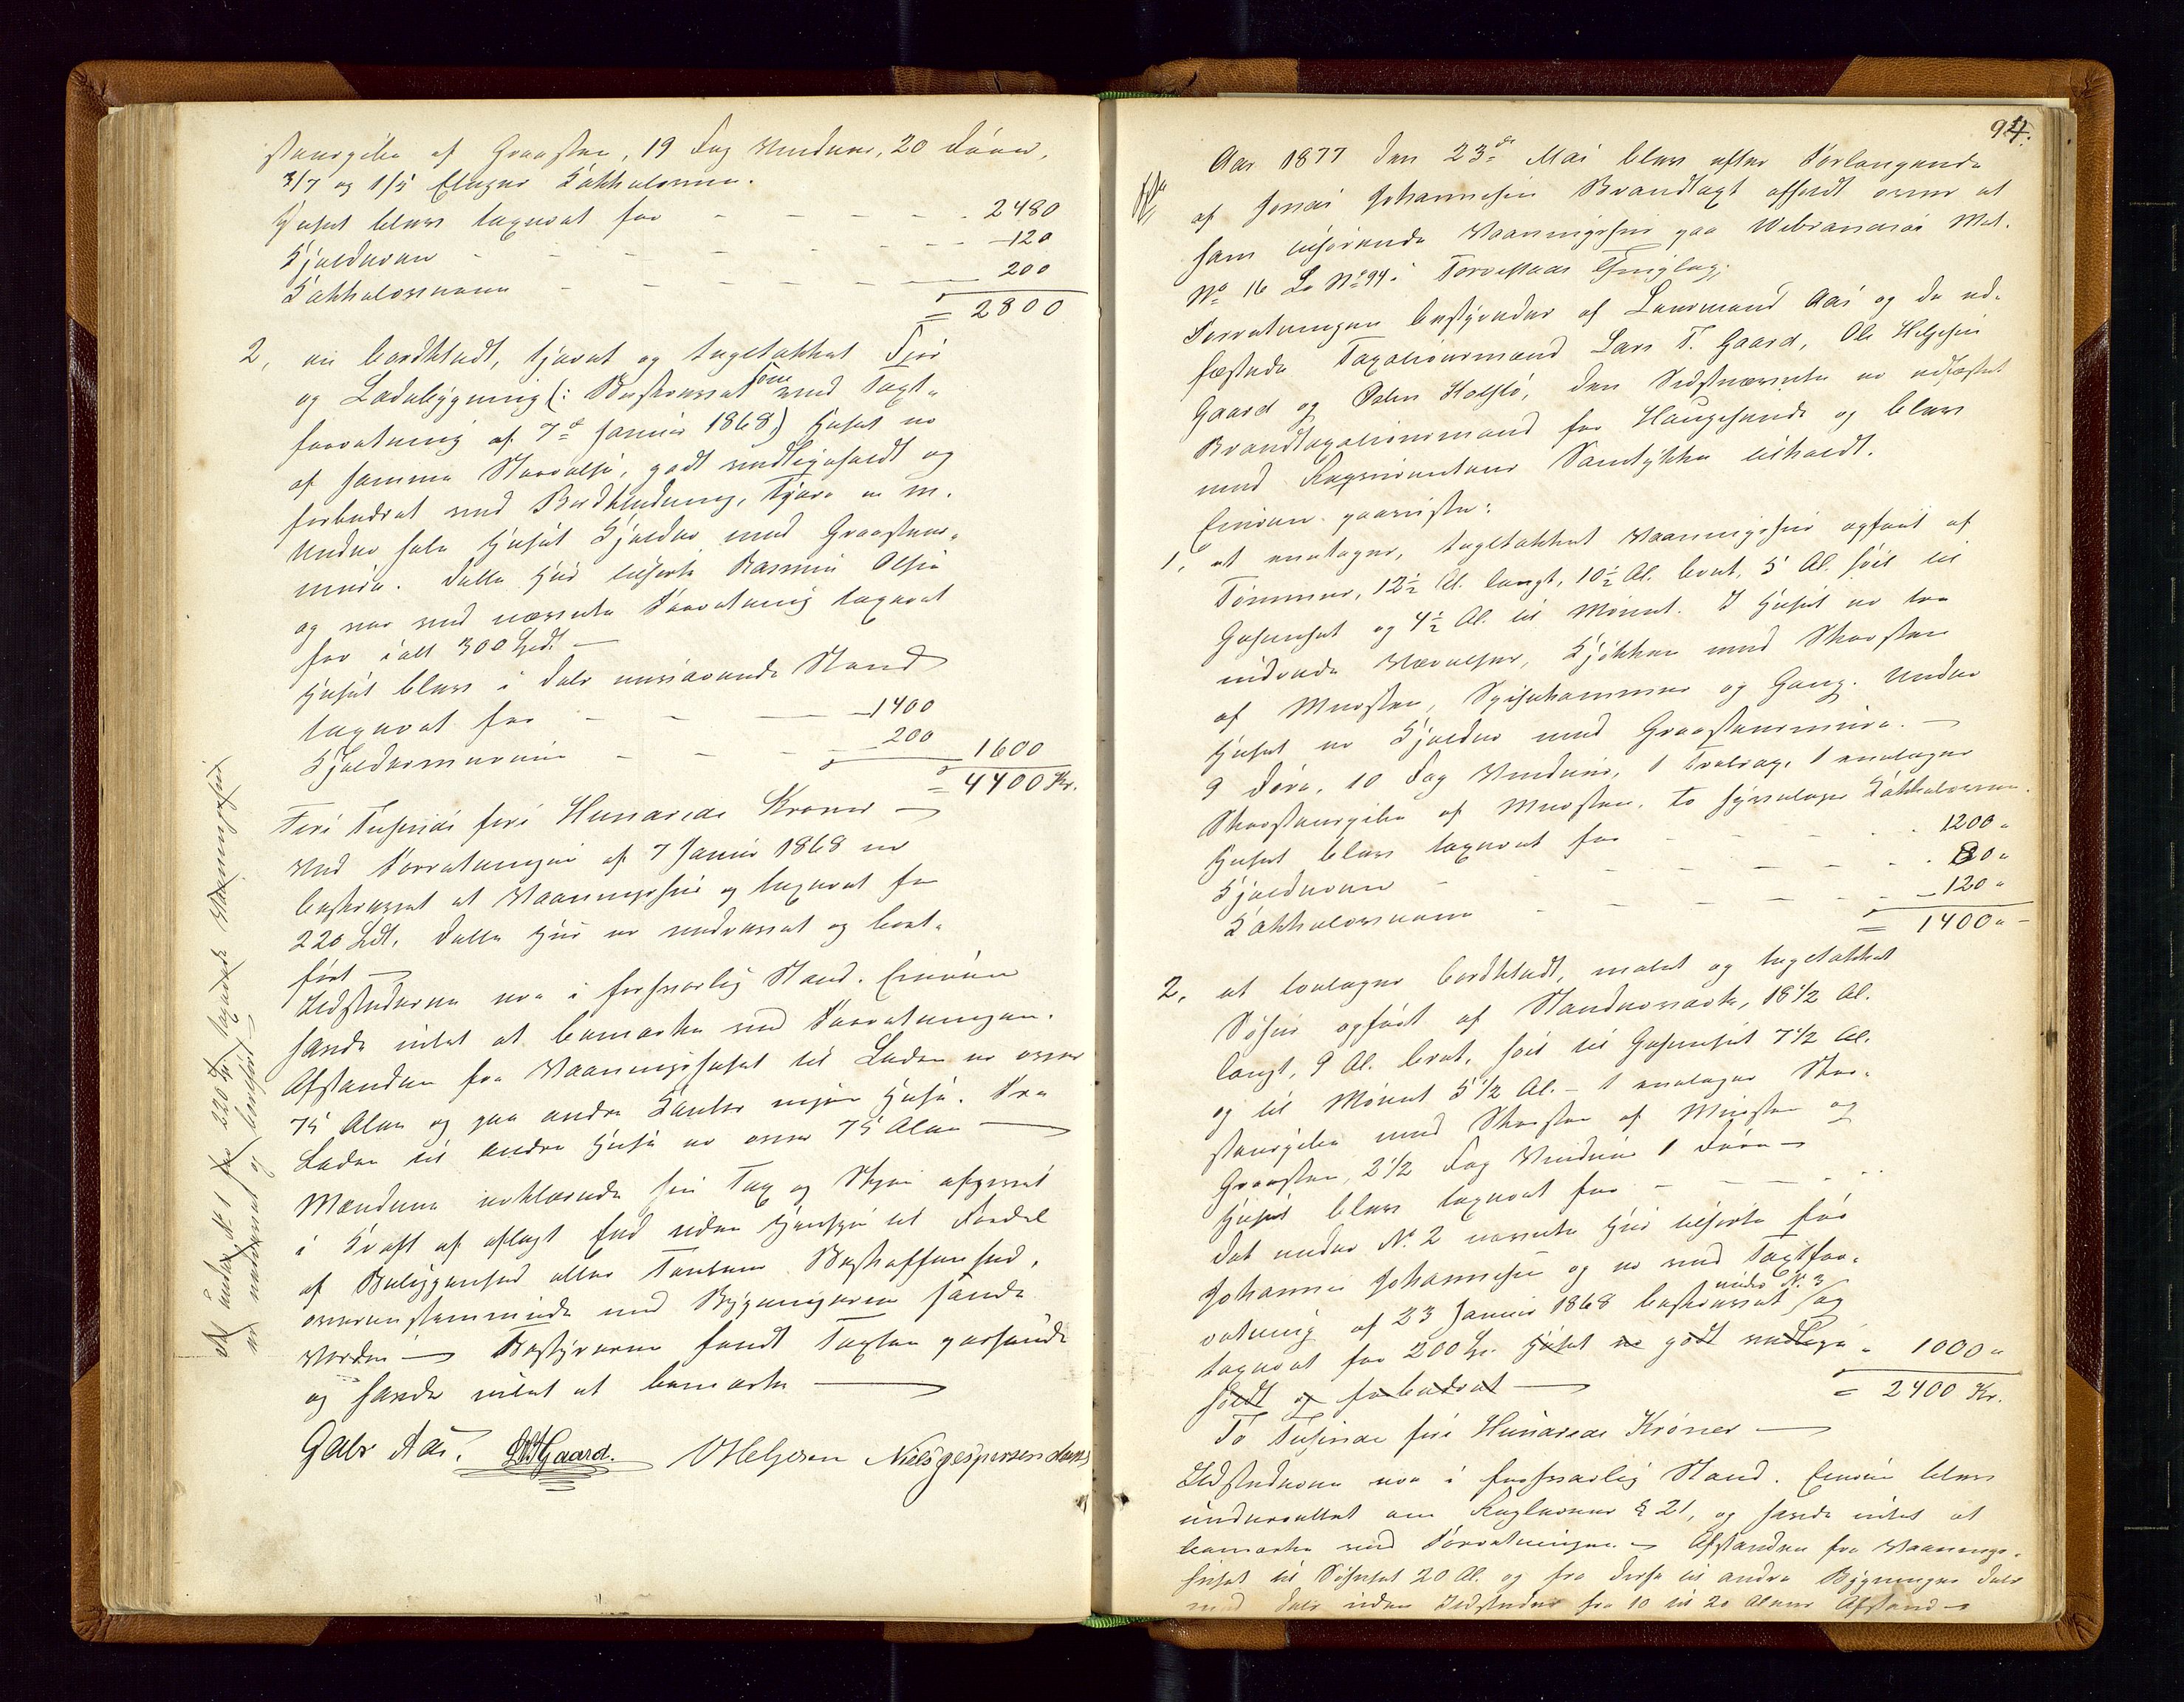 stensgibe af Graasten, 19 Fag Vinduer, 20 Dører,
3/7 og 1/5 Etages Kakkelovne.
Huset blev taxeret for - - - - - 2480
Kjelderen - - - - - - 120
Kakkelovnene - - - - - 200
= 2800
2, en bordklædt, tjæret og tagtækket Fjøs
og Ladebygning (: Beskrevet som ved Taxt-
forretning af 7de Januar 1868) Huset er
af samme Størrelse, godt vedligeholdt og
forbedret med Bordklædning, Tjære o. m.
Under hele Huset Kjelder med Graastens-
mure. Dette Huus tilhørte Rasmus Olsen
og var ved nævnte Forretning taxeret
for i alt 300 Spd. -
Huset blev i dets nuværende Stand
taxeret for - - - 1400
Kjeldermurene - - - 200 1600
= 4400 Kr.
Fire Tusinde fire Hundrede Kroner -
Ved Forretningen af 7 Januar 1868 er
beskrevet et Vaaningshus og taxeret for
220 Spd. Dette Hus er nedrevet og bort-
ført -
Ildstederne var i forsvarlig Stand. Eieren
havde intet at bemærke ved Forretningen.
Afstanden fra Vaaningshuset til Laden er over
75 Alen og paa andre Kanter ingen Huse. Fra
Laden til andre Huse er over 75 Alen -
Mændene erklærede sin Tax og Skjøn afgivet
i Kraft af aflagt Eed uden Hensyn til Fordel
af Beliggenhed eller Tomtens Beskaffenhed,
overensstemmende med Bygningernes sande
Værdi - Bestyreren fandt Taxten passende
og havde intet at bemærke -
Gabr Aas. L. T. Gaard. O Helgesen Niels Jespersen
Det under No 1 for 220 Sp. taxerede Vaaningshus
er nedrevet og bortført -
94.
Aar 1877 den 23de Mai blev efter Forlangende
af Jonas Johannesen Brandtaxt afholdt over et
ham tilhørende Vaaningshus paa Vibrandsøe Mat.
No 16 L. No 94. i Torvestads Thinglag.
Forretningen bestyredes af Lensmand Aas og de ud-
fæstede Taxationsmænd Lars T. Gaard, Ole Helgesen
Gaard og Peder Kolstø, den Sidstnævnte er udfæstet
Brandtaxationsmand for Haugesund og blev
med Reqvirentens Samtykke tilkaldt.
Eieren paaviste:
1, et enetages, tagtækket Vaaningshus opført af
Tømmer, 12½ Al. langt, 10½ Al. bredt, 5 Al. høit til
Gesimset og 4½ Al. til Mønet. I Huset er tre
indrede Værelser, Kjøkken med Skorsten
af Mursten, Spisekammer og Gang. Under
Huset er Kjelder med Graastensmure. -
9 Døre, 10 Fag Vinduer, 1 Trætrap, 1 enetages
Skorstenspibe af Mursten. To Kakkelovne.
Huset blev taxeret for - - - 1200 "
Kjelderen - - - - - 80 "
Kakkelovnene - - - - - 120 "
= 1400 " -
2, et toetages bordklædt, malet og tagtækket
Søhus opført af Standværk, 18½ Al.
langt, 9 Al. bredt, høit til Gesimset 7½ Al.
og til Mønet 5½ Al. - 1 enetages Skor-
stenspibe med Skorsten af Mursten og
Graasten, 2½ Fag Vinduer 1 Døre -
Huset blev taxeret for - - -
Det under No. 2 nævnte Hus tilhørte før
Johannes Johannesen og er ved Taxtfor-
retning af 23 Januar 1868 beskrevet under No. 3 og
taxeret for 200 Sp. Huset er godt vedlige- " 1000 "
holdt og forbedret - = 2400 Kr.
To Tusinde fire Hundrede Kroner -
Ildstederne var i forsvarlig Stand. Eieren blev
underrettet om Reglernes § 21, og havde intet at
bemærke ved Forretningen. - Afstanden fra Vaanings-
huset til Søhuset 20 Al. og fra disse til andre Bygninger dels
med dels uden Ildsteder fra 10 til 20 Alens Afstand -